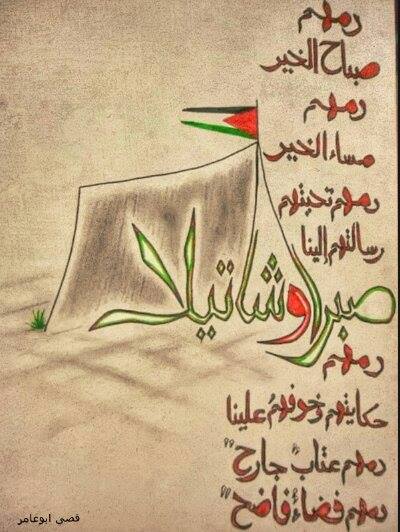 رمهم
صباح الخير
رمهم
مساء الخير
رمهم تحيتهم
رسالتهم إلينا
صبرا وشاتيلا
رمهم
حكايتهم وخوفهمُ علينا
رمهم عتابٌ جارح"
رمهم فضاءٌ فاضح"
قصي ابوعامر